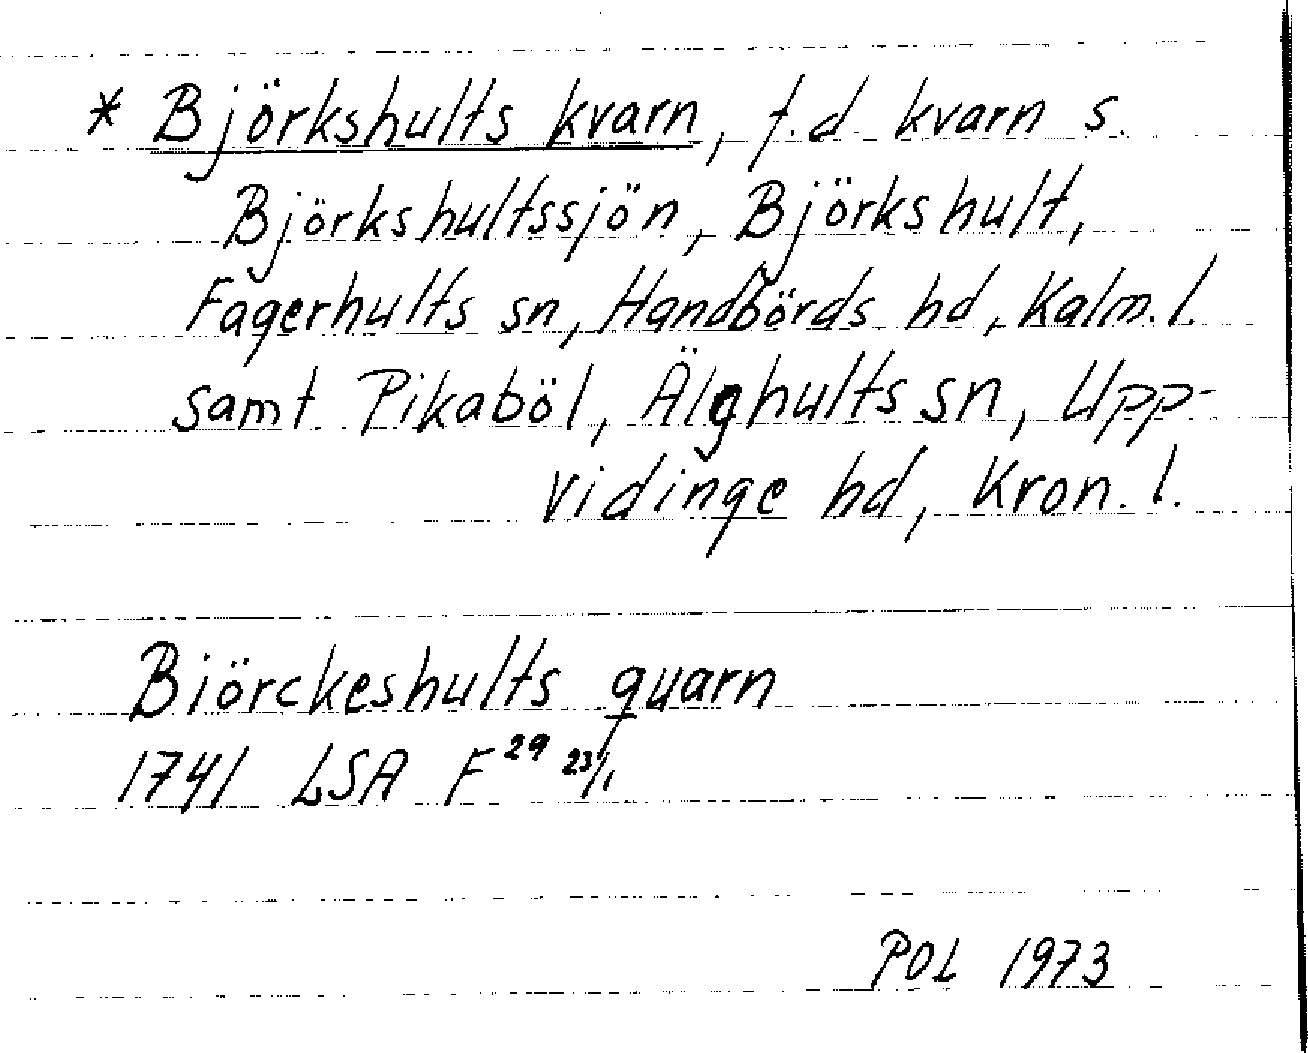 * Björkshults kvarn, f.d kvarn s.
Björkshultssjön, Björkshult,
Fagerhults sn, Handbörds hd, Kalm. l.
samt Pikaböl, Älghults sn, Upp-
vidinge hd, Kron. l.
Biörckeshults quarn
1741 LSA F 29 23/1
POL 1973